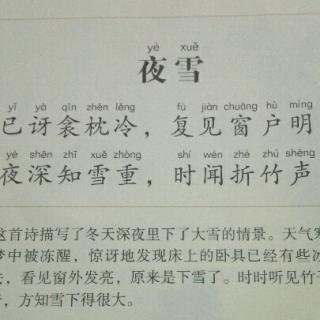 yè xuě
夜雪
yǐ yà qīn zhěn lěng fù jiàn chuāng hù míng
已讶衾枕冷，复见窗户明
yè shēn zhī xuě zhòng shí wén zhé zhú shēng
夜深知雪重，时闻折竹声
这首诗描写了冬天深夜里下了大雪的情景。天气寒
梦中被冻醒，惊讶地发现床上的卧具已经有些冰
去，看见窗外发亮，原来是下雪了。时时听见竹子
，方知雪下得很大。